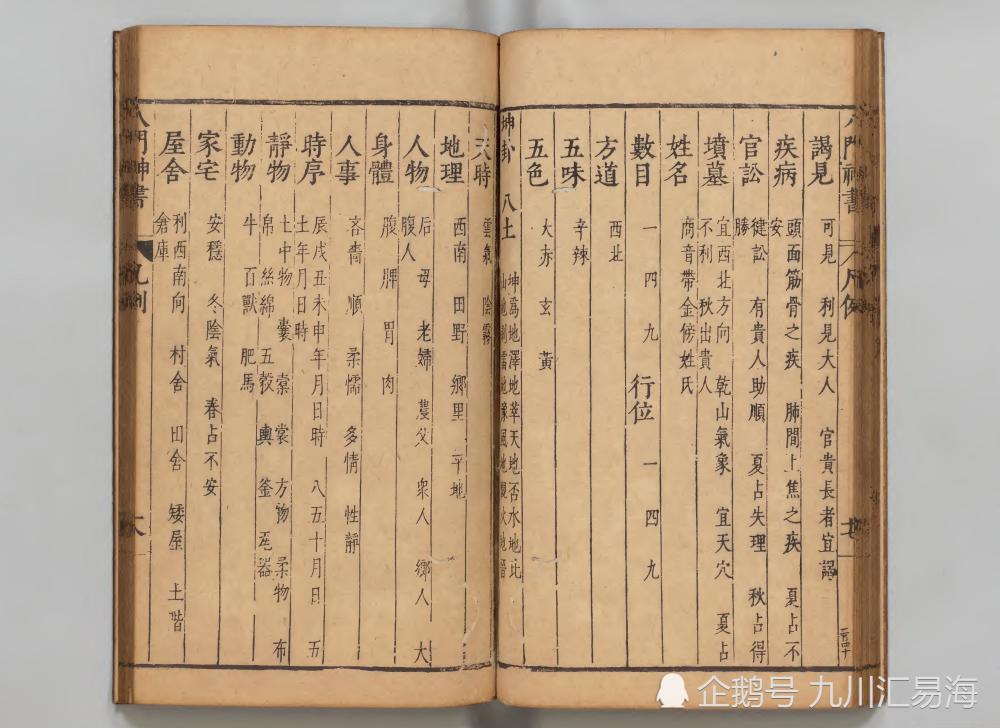 謁見 可見 利見大人 官貴長者宜謁
疾病 頭面筋骨之疾 肺間上焦之疾 夏占不
安
官訟 徤訟 有貴人助順 夏占失理 秋占得
勝
墳墓 宜西北方向 乾山氣象 宜天穴 夏占
不利 秋出貴人
姓名 商音帶金傍姓氏
數目 一 四 九 行位 一 四 九
方道 西北
五味 辛辣
五色 大赤 玄 黃
坤卦 八土 坤爲地 澤地萃 天地否 水地比
山地剝 雷地豫 風地觀 火地晉
天時 雲氣 陰霧
地理 西南 田野 鄉里 平地
人物 后 母 老婦 農父 衆人 鄉人 大
腹人
身體 腹 脾 胃 肉
人事 吝嗇 順 柔懦 多情 性靜
時序 辰戌丑未申年月日時 八五十月日 五
土年月日時
靜物 土中物 囊 裳 方物 柔物 布
帛 絲綿 五穀 輿 釜 瓦器
動物 牛 百獸 肥馬
家宅 安穩 冬陰氣 春占不安
屋舍 利西南向 村舍 田舍 矮屋 土階
倉庫
八門神書
企鹅号 九川汇易海